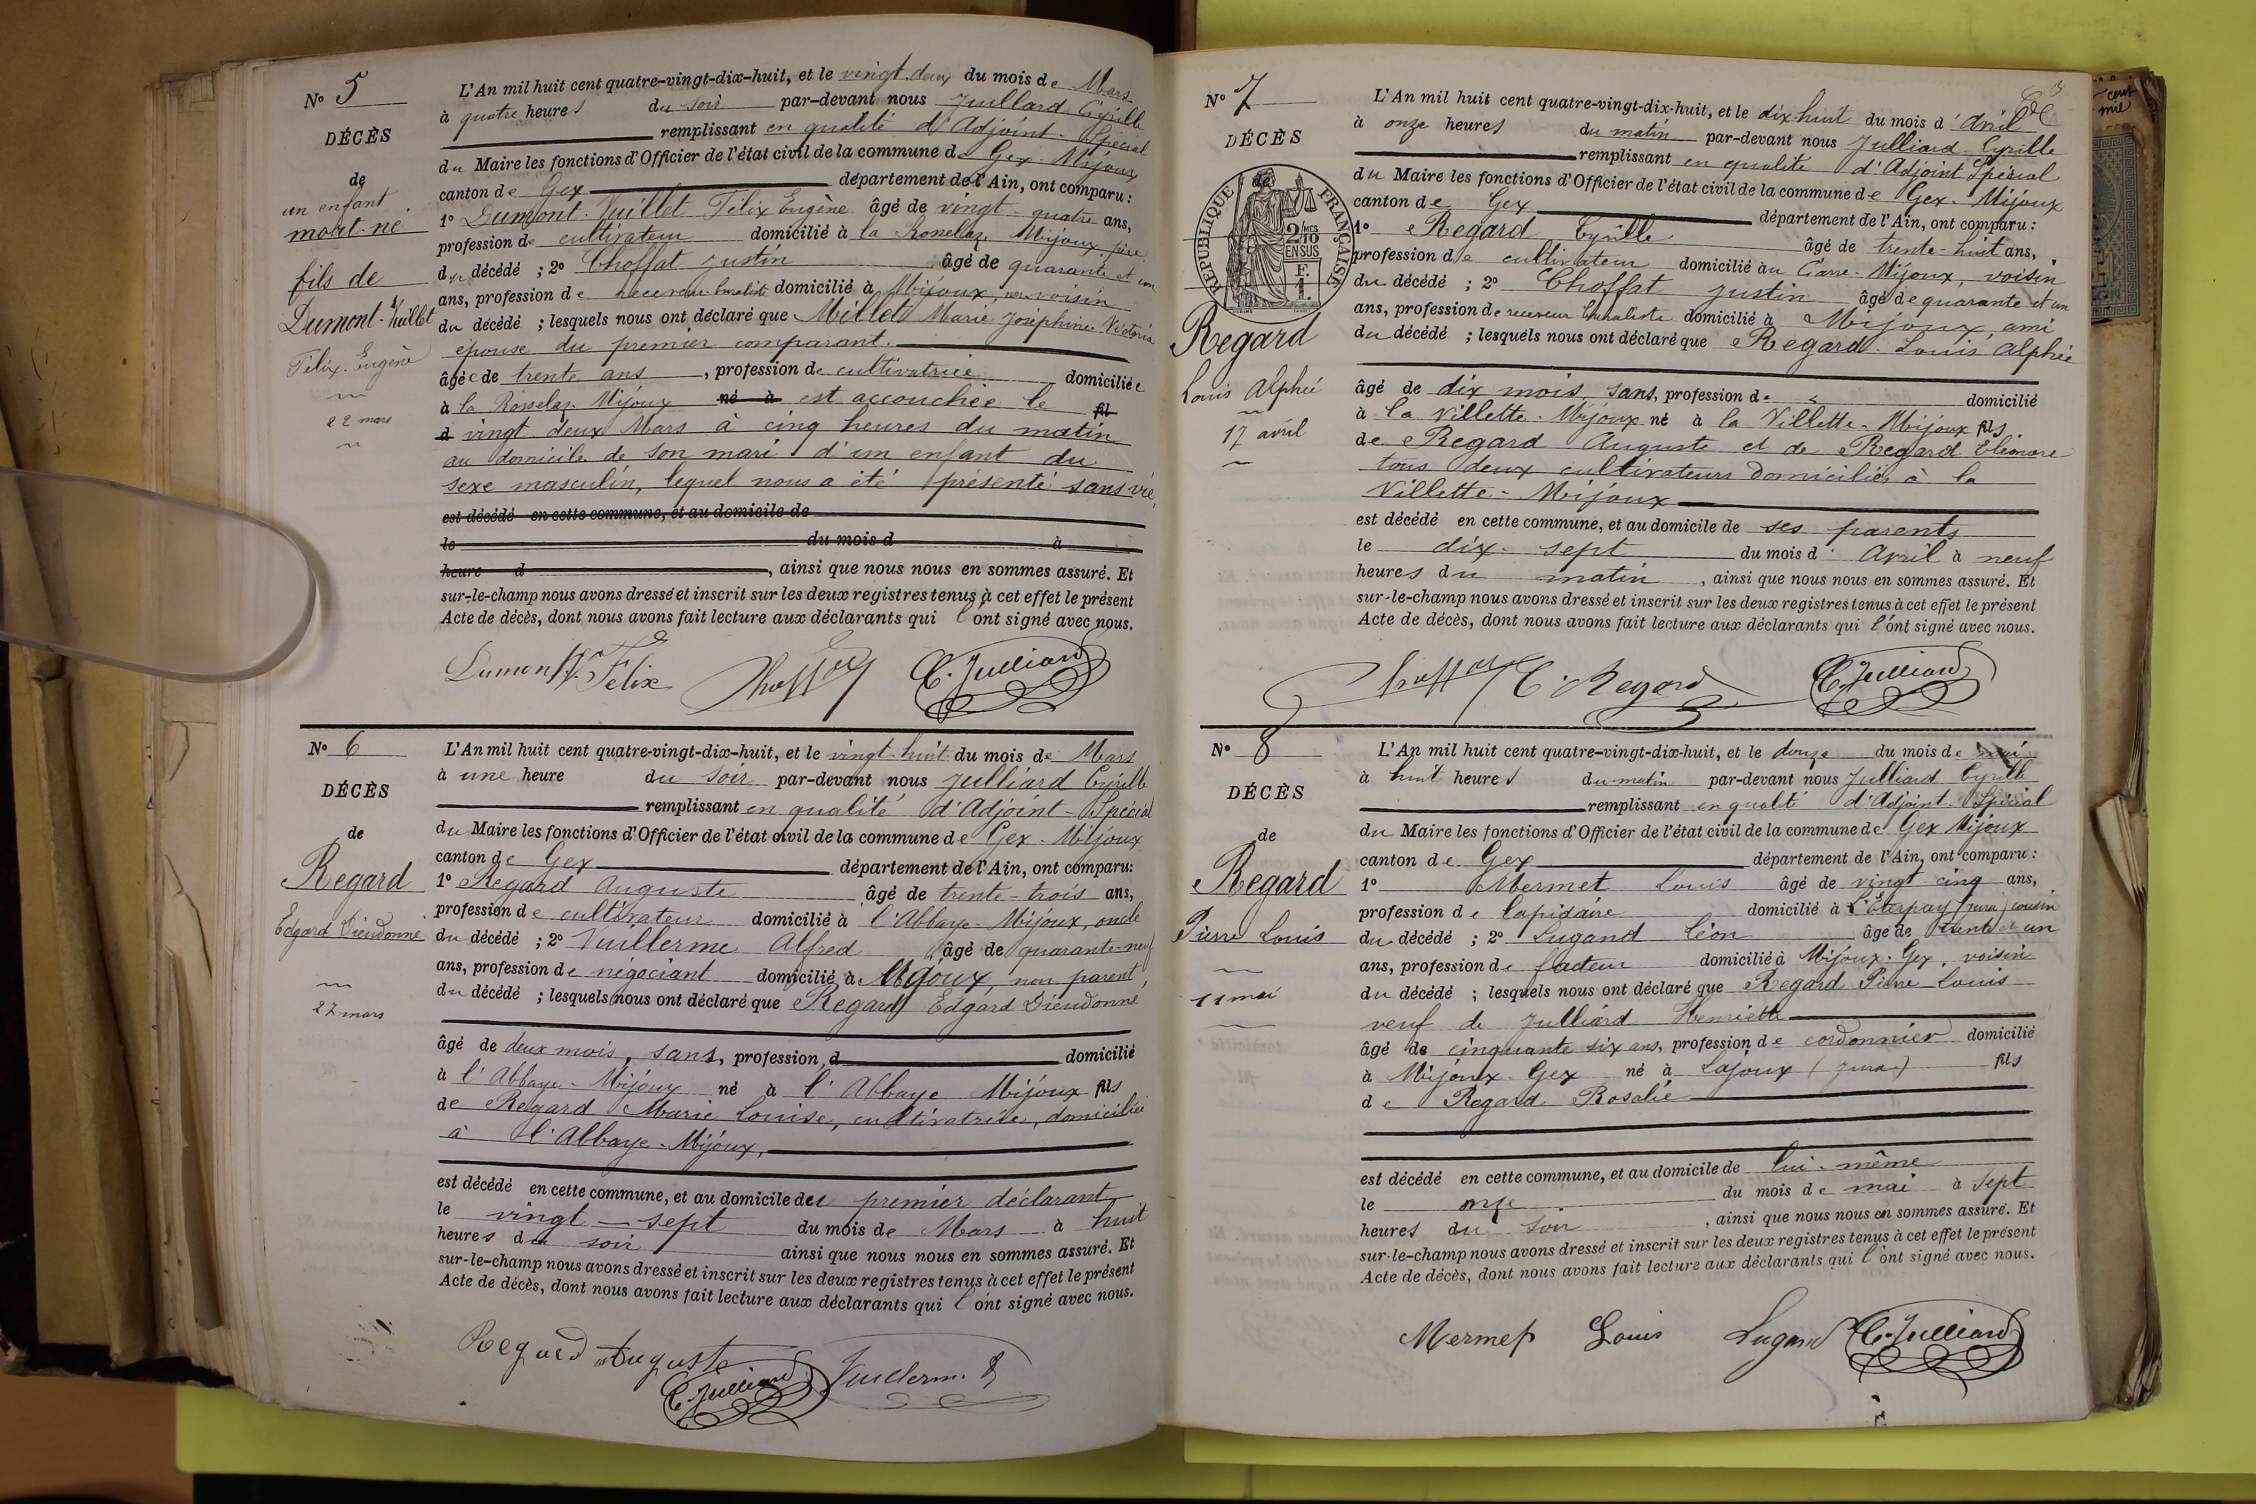 N° 5
DÉCÈS
de
un enfant
mort-né
fils de
Dumont-Vuillet
Félix-Eugène
22 mars
L'An mil huit cent quatre-vingt-dix-huit, et le vingt-deux du mois de Mars
à quatre heures du soir par-devant nous Julliard Cyrille
remplissant en qualité d'Adjoint-Spécial
du Maire les fonctions d'Officier de l'état civil de la commune de Gex-Mijoux
canton de Gex département de l'Ain, ont comparu :
1° Dumont-Vuillet Félix Eugène âgé de vingt-quatre ans,
profession de cultivateur domicilié à la Mijoux, père
du décédé ; 2° Choffat Justin âgé de quarante et un
ans, profession de receveur buraliste domicilié à Mijoux, voisin
du décédé ; lesquels nous ont déclaré que Millet Marie Joséphine Victoria
épouse du premier comparant.
âgée de trente ans, profession de cultivatrice domiciliée
à la Mijoux né à est accouchée le fil
d vingt-deux Mars à cinq heures du matin
au domicile de son mari d'un enfant du
sexe masculin, lequel nous a été présenté sans vie
est décédé en cette commune, et au domicile de
le du mois d à
heure d , ainsi que nous nous en sommes assuré. Et
sur-le-champ nous avons dressé et inscrit sur les deux registres tenus à cet effet le présent
Acte de décès, dont nous avons fait lecture aux déclarants qui l'ont signé avec nous.
Dumont V. Félix Choffat C. Julliard
N° 6
DÉCÈS
de
Regard
Edgard Dieudonné
27 mars
L'An mil huit cent quatre-vingt-dix-huit, et le vingt-huit du mois de Mars
à une heure du soir par-devant nous Julliard Cyrille
remplissant en qualité d'Adjoint-Spécial
du Maire les fonctions d'Officier de l'état civil de la commune de Gex-Mijoux
canton de Gex département de l'Ain, ont comparu :
1° Regard Auguste âgé de trente-trois ans,
profession de cultivateur domicilié à l'Abbaye-Mijoux, oncle
du décédé ; 2° Vuillerme Alfred âgé de quarante-neuf
ans, profession de négociant domicilié à Mijoux, non parent
du décédé ; lesquels nous ont déclaré que Regard Edgard Dieudonné
âgé de deux mois, sans, profession, d domicilié
à l'Abbaye-Mijoux né à l'Abbaye Mijoux fils
de Regard Marie Louise, cultivatrice, domiciliée
à l'Abbaye-Mijoux,
est décédé en cette commune, et au domicile du premier déclarant
le vingt-sept du mois de Mars à huit
heures du soir ainsi que nous nous en sommes assuré. Et
sur-le-champ nous avons dressé et inscrit sur les deux registres tenus à cet effet le présent
Acte de décès, dont nous avons fait lecture aux déclarants qui l'ont signé avec nous.
Regard Auguste
C. Julliard
N° 7
DÉCÈS
de
RÉPUBLIQUE FRANÇAISE
2/10 MES
EN SUS
F.
1.
Regard
Louis Alphée
17 avril
3
L'An mil huit cent quatre-vingt-dix-huit, et le dix-huit du mois d'avril
à onze heures du matin par-devant nous Julliard Cyrille
remplissant en qualité d'Adjoint Spécial
du Maire les fonctions d'Officier de l'état civil de la commune de Gex-Mijoux
canton de Gex département de l'Ain, ont comparu :
1° Regard Cyrille âgé de trente-huit ans,
profession de cultivateur domicilié au Mijoux, voisin
du décédé ; 2° Choffat Justin âgé de quarante et un
ans, profession de receveur buraliste domicilié à Mijoux, ami
du décédé ; lesquels nous ont déclaré que Regard Louis Alphée
âgé de dix mois sans, profession de domicilié
à la Villette-Mijoux né à la Villette-Mijoux fils
de Regard Auguste et de Regard Eléonore
tous deux cultivateurs domiciliés à la
Villette-Mijoux
est décédé en cette commune, et au domicile de ses parents
le dix-sept du mois d'Avril à neuf
heures du matin , ainsi que nous nous en sommes assuré. Et
sur-le-champ nous avons dressé et inscrit sur les deux registres tenus à cet effet le présent
Acte de décès, dont nous avons fait lecture aux déclarants qui l'ont signé avec nous.
Choffat C. Regard C. Julliard
N° 8
DÉCÈS
de
Regard
Pierre Louis
11 mai
L'An mil huit cent quatre-vingt-dix-huit, et le douze du mois de mai
à huit heures du matin par-devant nous Julliard Cyrille
remplissant en qualité d'Adjoint-Spécial
du Maire les fonctions d'Officier de l'état civil de la commune de Gex Mijoux
canton de Gex département de l'Ain, ont comparu :
1° Mermet Louis âgé de vingt cinq ans,
profession de lapidaire domicilié à (Jura) cousin
du décédé ; 2° Lugand Léon âgé de trente et un
ans, profession de facteur domicilié à Mijoux-Gex, voisin
du décédé ; lesquels nous ont déclaré que Regard Pierre Louis
veuf de Julliard Henriette
âgé de cinquante six ans, profession de cordonnier domicilié
à Mijoux-Gex né à Lajoux (Jura) fils
de Regard Rosalie
est décédé en cette commune, et au domicile de lui-même
le onze du mois de mai à sept
heures du soir , ainsi que nous nous en sommes assuré. Et
sur-le-champ nous avons dressé et inscrit sur les deux registres tenus à cet effet le présent
Acte de décès, dont nous avons fait lecture aux déclarants qui l'ont signé avec nous.
Mermet Louis Lugand C. Julliard